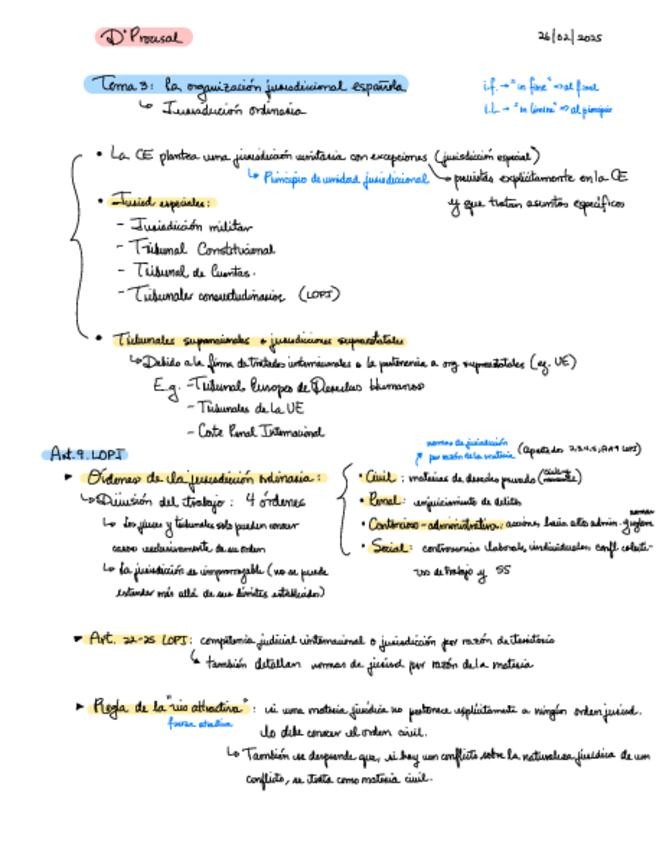 D° Procesal
26/02/2025
Tema 3: La organización jurisdiccional española
↳ Jurisdicción ordinaria
i.f. → "in fine" => al final
i.l. → "in limine" => al principio
• La CE plantea una jurisdicción unitaria con excepciones (jurisdicción especial)
↳ Principio de unidad jurisdiccional
→ previstas explícitamente en la CE
y que tratan asuntos específicos
• Jurisd especiales:
- Jurisdicción militar
- Tribunal Constitucional
- Tribunal de Cuentas.
- Tribunales consuetudinarios (LOPJ)
• Tribunales supranacionales o jurisdicciones supraestatales
↳ Debido a la firma de tratados internacionales o la pertenencia a org supraestatales (eg. UE)
E.g. - Tribunal Europeo de Derechos Humanos
- Tribunales de la UE
- Corte Penal Internacional
Art. 9. LOPJ
normas de jurisdicción
por razón de la materia
(Apartados 2,3,4,5, Art 9 LOPJ)
► Órdenes de la jurisdicción ordinaria:
↳ División del trabajo: 4 órdenes
↳ Los jueces y tribunales solo pueden conocer
casos exclusivamente de su orden
↳ La jurisdicción es improrrogable (no se puede
extender más allá de sus límites establecidos)
• Civil: materias de derecho privado
• Penal: enjuiciamiento de delitos
• Contencioso-administrativa: acciones, bajo admin.
• Social: controversias laborales, individuales, confl colecti-
vos de trabajo y SS
► Art. 22-25 LOPJ: competencia judicial internacional o jurisdicción por razón de territorio
↳ también detallan normas de jurisd por razón de la materia
► Regla de la "vis attractiva": si una materia jurídica no pertenece explícitamente a ningún orden jurisd.
fuerza atractiva
lo debe conocer el orden civil.
↳ También se desprende que, si hay un conflicto sobre la naturaleza jurídica de un
conflicto, se trata como materia civil.